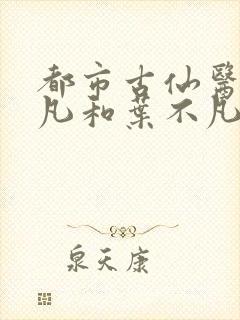 都市古仙醫
凡和葉不凡
泉天康